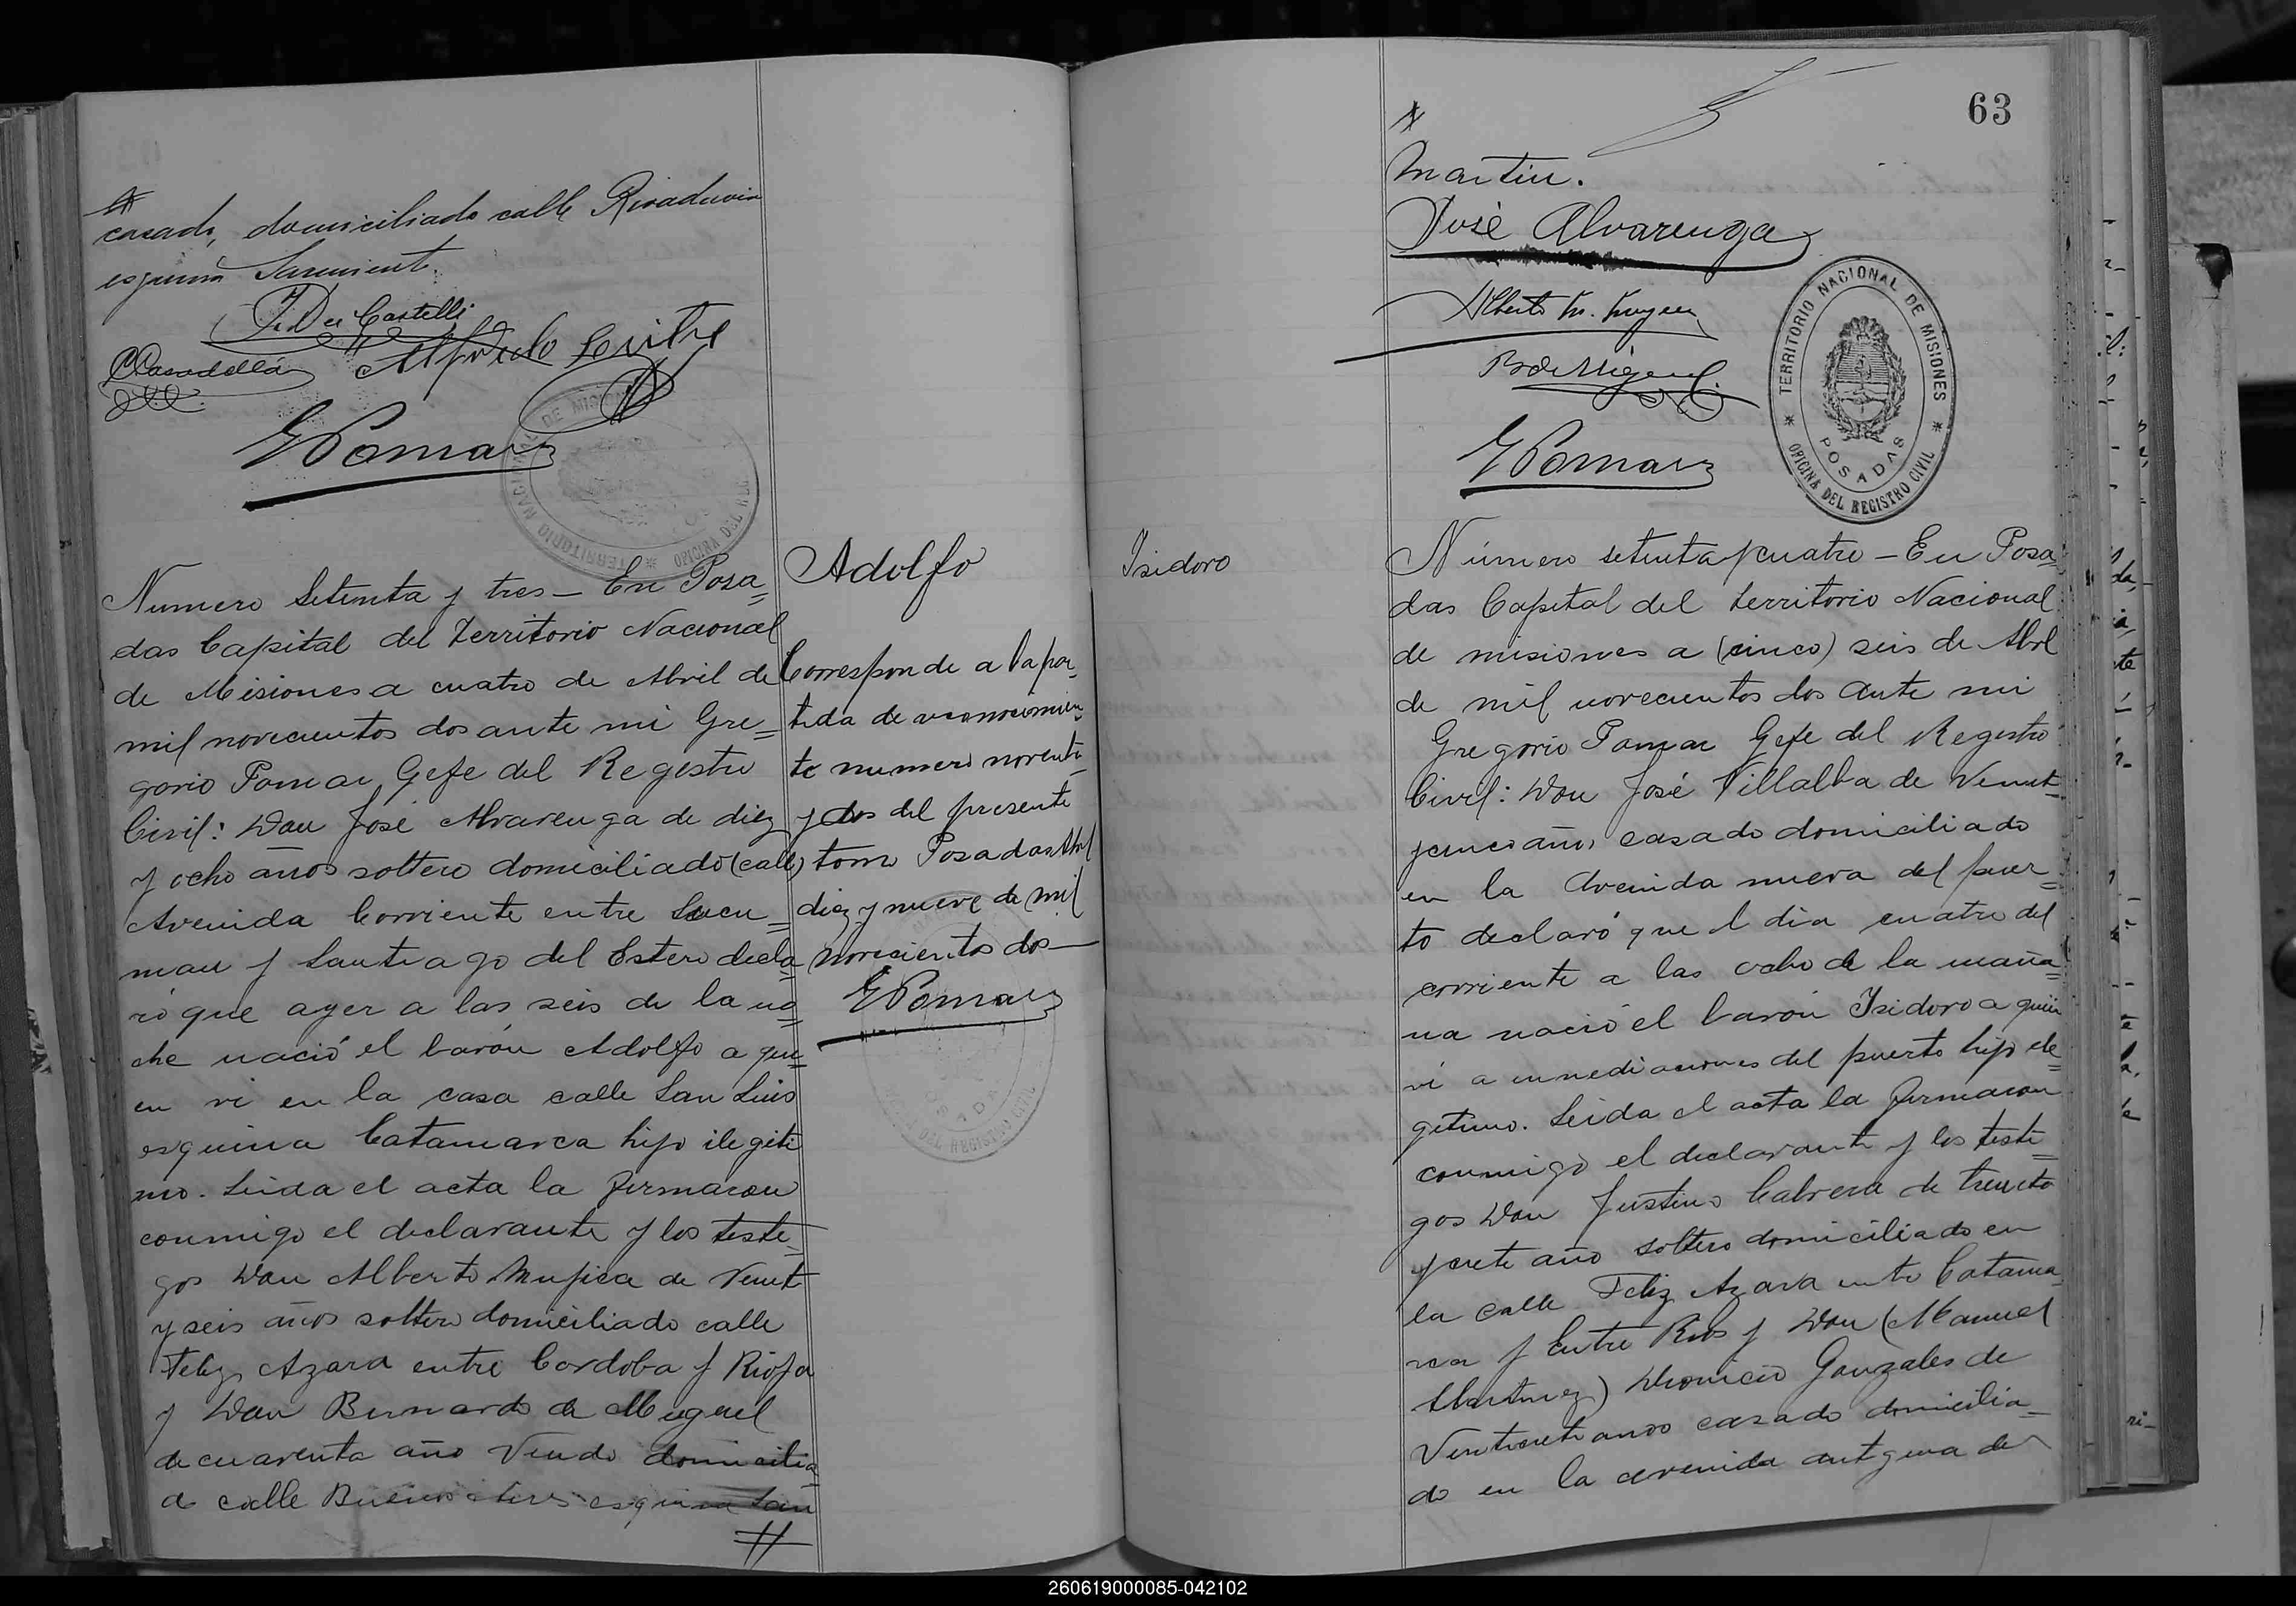 casado, domiciliado calle Rivadavia
esquina Sarmiento.
Castelli
Alfredo
GPomar
Numero Setenta y tres – En Posa=
das Capital del Territorio Nacional
de Misiones a cuatro de Abril de
mil novecientos dos ante mi Gre=
gorio Pomar Gefe del Registro
Civil: Don José Alvarenga de diez
y ocho años soltero domiciliado (calle)
Avenida Corriente entre Tucu=
man y Santiago del Estero decla=
ró que ayer a las seis de la no=
che nació el baron Adolfo a qui=
en vi en la casa calle San Luis
esquina Catamarca hijo ilegiti
mo. Leida el acta la firmaron
conmigo el declarante y los testi=
gos Don Alberto Mujica de Veint
y seis años soltero domiciliado calle
Feliz Azara entre Cordoba y Rioja
y Don Bernardo de Miguel
de cuarenta año Viudo domicilia
do calle Buenos Aires esquina San
Adolfo
Corresponde a la par=
tida de reconocimien=
to numero noventa
y dos del presente
tomo Posadas Abril
diez y nueve de mil
novecientos dos—
GPomar
63
Martin.
José Alvarenga
Alberto M.
B de Miguel
GPomar
TERRITORIO NACIONAL DE MISIONES
POSADAS
OFICINA DEL REGISTRO CIVIL
Isidoro
Número setenta y cuatro – En Posa=
das Capital del territorio Nacional
de misiones a (cinco) seis de Abril
de mil novecientos dos ante mi
Gregorio Pomar Gefe del Registro
Civil: Don José Villalba de Veint=
y cinco años casado domiciliado
en la Avenida nueva del puer=
to declaró que el dia cuatro del
corriente a las ocho de la maña=
na nació el baron Isidoro a quien
vi a inmediaciones del puerto hijo le=
gitimo. Leida el acta la firmaron
conmigo el declarante y los testi=
gos Don Justino Cabrera de treinta
y siete año soltero domiciliado en
la calle Feliz Azara entre Catama
rca y Entre Rios y Don (Manuel
Martinez) Dionicio Gonzales de
Veintisiete anos casado domicilia=
do en la avenida antigua del
260619000085-042102